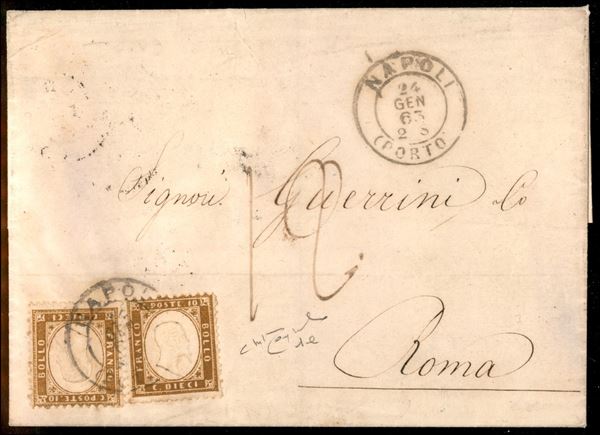 NAPOLI
24
GEN
63
2 S
(PORTO)
Signori Guerrini & Co
12
Roma
NAPOLI
FRANCO
BOLLO
C POSTE 10
DIECI
C POSTE 10
FRANCO
BOLLO
C DIECI